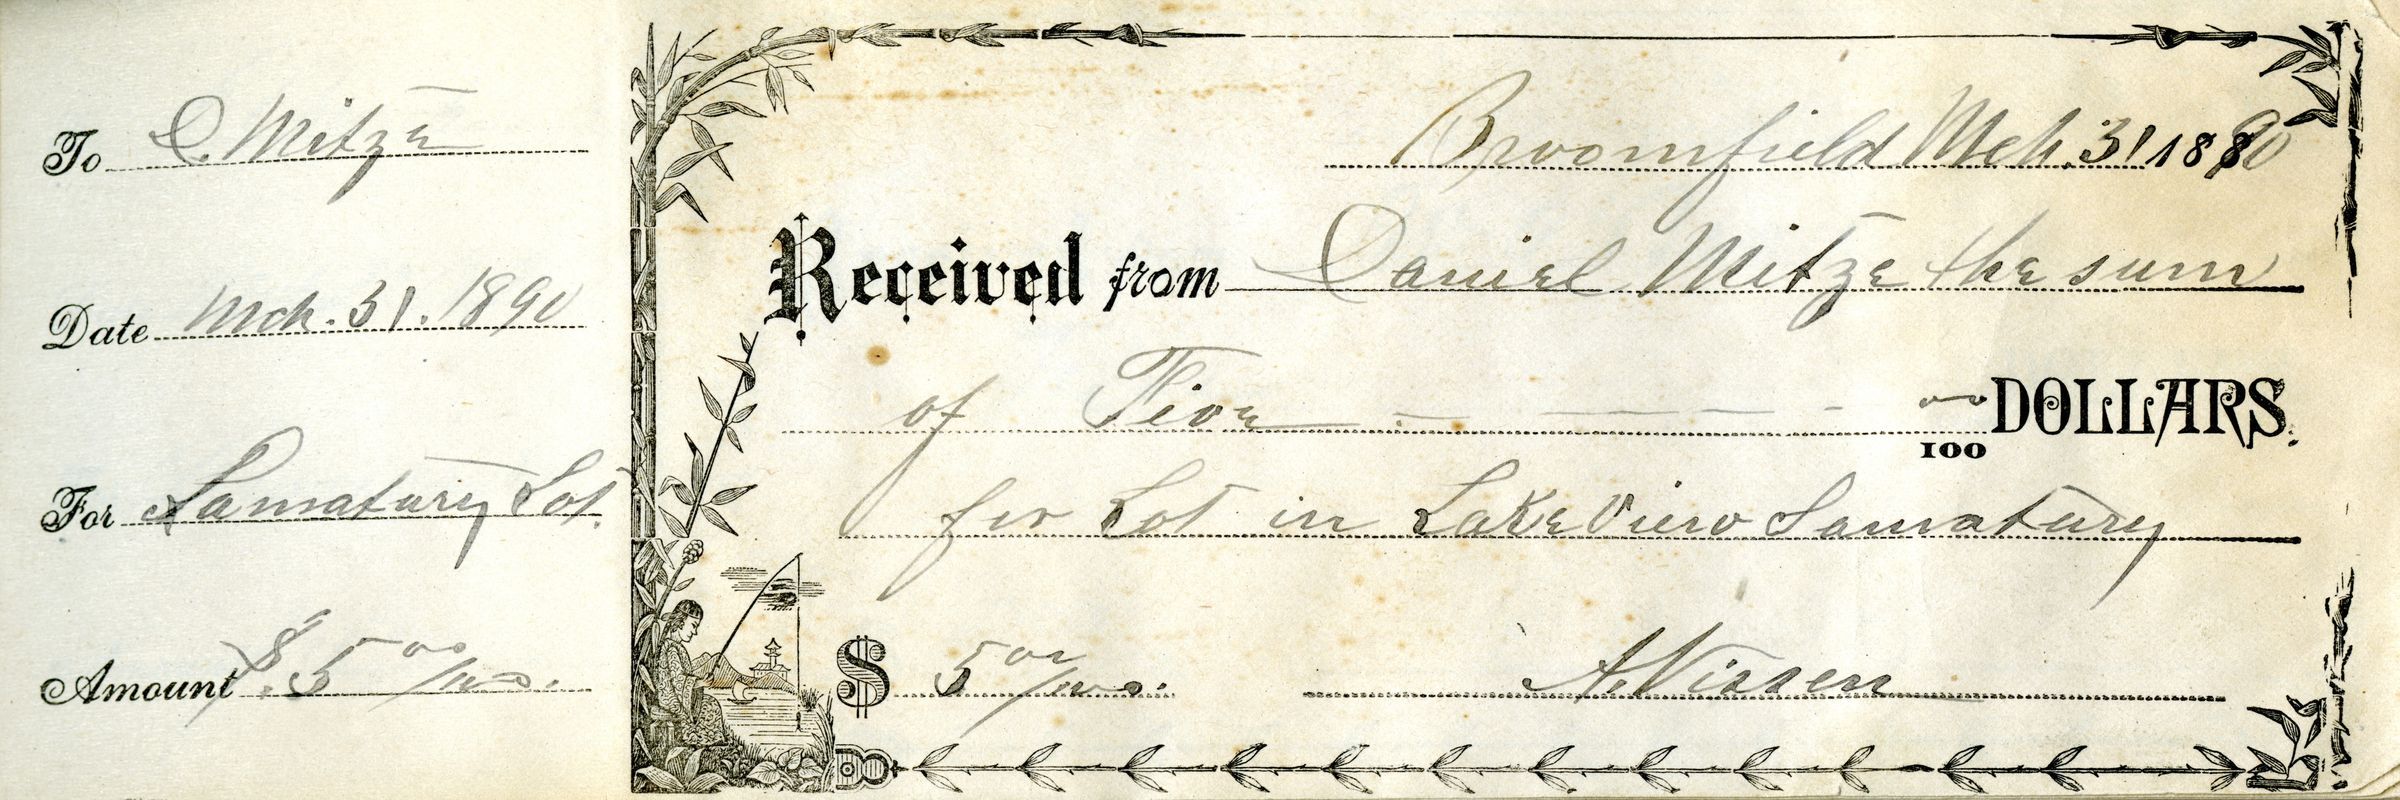 To D. Mitze
Date Mch. 31. 1890
For Samatury Lot.
Amount $.5 00/100.
Broomfield Mch. 31 1890
Received from Daniel Mitze the sum
of Five 00/100 DOLLARS.
for Lot in Lake View Samatury
$ 5 00/100.
A. Nissen